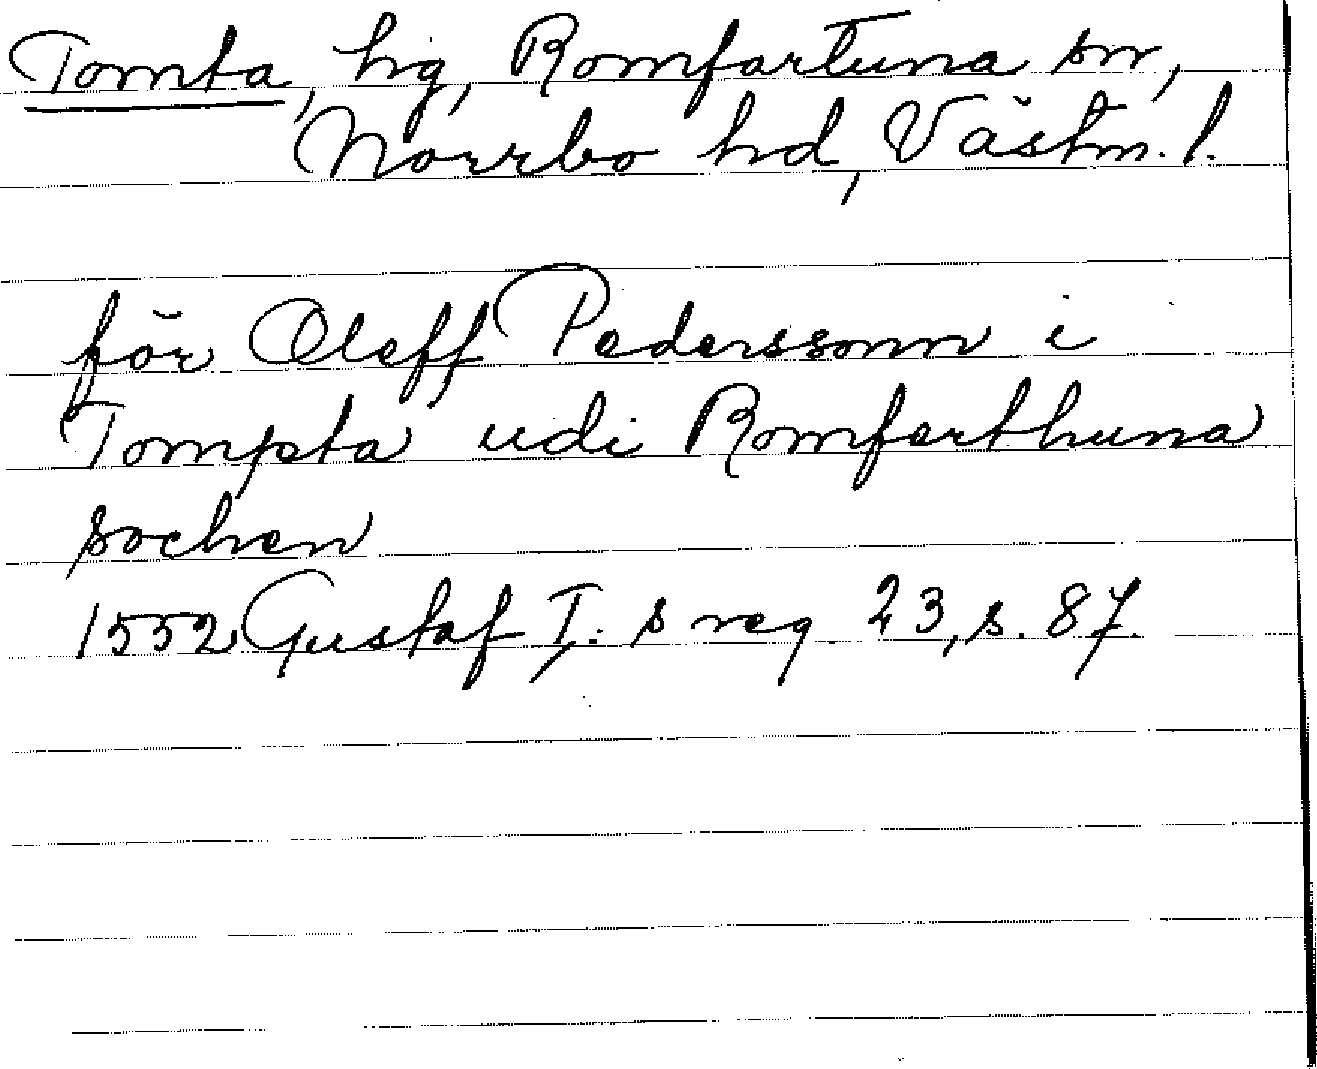 Tomta, hg, Romfartuna sn,
Norrbo hd, Västm. l.
för Oleff Pederssonn i
Tompta udi Romferthuna
sochen
1552 Gustaf I:s reg. 23, s. 87.